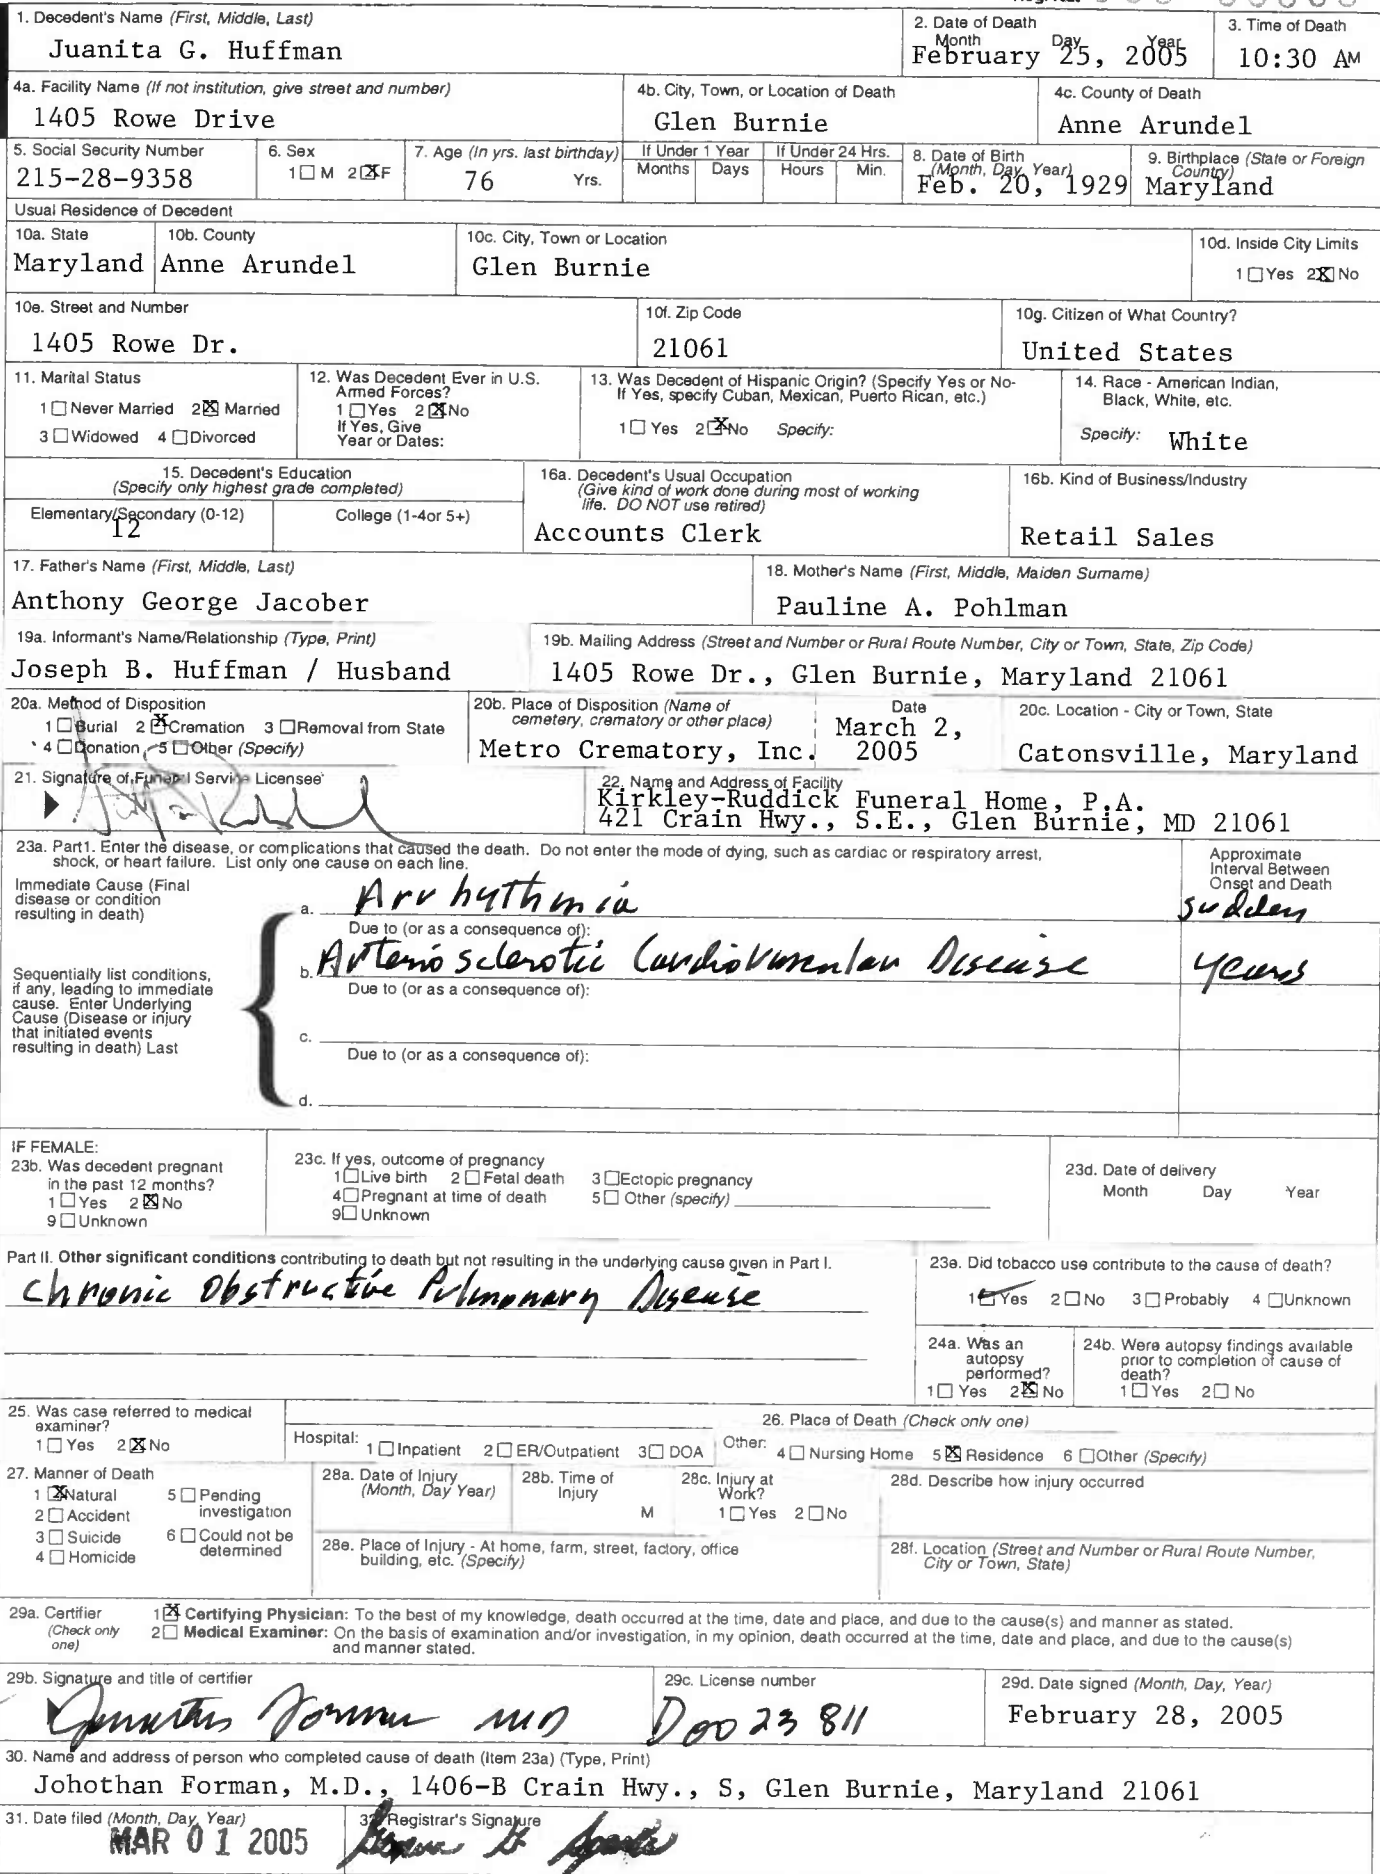 1. Decedent's Name (First, Middle, Last)
Juanita G. Huffman
2. Date of Death
Month Day Year
February 25, 2005
3. Time of Death
10:30 AM
4a. Facility Name (If not institution, give street and number)
1405 Rowe Drive
4b. City, Town, or Location of Death
Glen Burnie
4c. County of Death
Anne Arundel
5. Social Security Number
215-28-9358
6. Sex
1☐ M 2☒F
7. Age (In yrs. last birthday)
76 Yrs.
If Under 1 Year
Months Days
If Under 24 Hrs.
Hours Min.
8. Date of Birth
(Month, Day, Year)
Feb. 20, 1929
9. Birthplace (State or Foreign
Country)
Maryland
Usual Residence of Decedent
10a. State
Maryland
10b. County
Anne Arundel
10c. City, Town or Location
Glen Burnie
10d. Inside City Limits
1 ☐Yes 2☒ No
10e. Street and Number
1405 Rowe Dr.
10f. Zip Code
21061
10g. Citizen of What Country?
United States
11. Marital Status
1 ☐ Never Married 2☒ Married
3 ☐ Widowed 4 ☐ Divorced
12. Was Decedent Ever in U.S.
Armed Forces?
1 ☐ Yes 2 ☒No
If Yes, Give
Year or Dates:
13. Was Decedent of Hispanic Origin? (Specify Yes or No-
If Yes, specify Cuban, Mexican, Puerto Rican, etc.)
1☐ Yes 2☒No Specify:
14. Race - American Indian,
Black, White, etc.
Specify: White
15. Decedent's Education
(Specify only highest grade completed)
Elementary/Secondary (0-12)
12
College (1-4or 5+)
16a. Decedent's Usual Occupation
(Give kind of work done during most of working
life. DO NOT use retired)
Accounts Clerk
16b. Kind of Business/Industry
Retail Sales
17. Father's Name (First, Middle, Last)
Anthony George Jacober
18. Mother's Name (First, Middle, Maiden Surname)
Pauline A. Pohlman
19a. Informant's Name/Relationship (Type, Print)
Joseph B. Huffman / Husband
19b. Mailing Address (Street and Number or Rural Route Number, City or Town, State, Zip Code)
1405 Rowe Dr., Glen Burnie, Maryland 21061
20a. Method of Disposition
1 ☐ Burial 2 ☒Cremation 3 ☐Removal from State
4 ☐ Donation 5 ☐ Other (Specify)
20b. Place of Disposition (Name of
cemetery, crematory or other place)
Metro Crematory, Inc.
Date
March 2,
2005
20c. Location - City or Town, State
Catonsville, Maryland
21. Signature of Funeral Service Licensee
22. Name and Address of Facility
Kirkley-Ruddick Funeral Home, P.A.
421 Crain Hwy., S.E., Glen Burnie, MD 21061
23a. Part1. Enter the disease, or complications that caused the death. Do not enter the mode of dying, such as cardiac or respiratory arrest,
shock, or heart failure. List only one cause on each line.
Approximate
Interval Between
Onset and Death
Immediate Cause (Final
disease or condition
resulting in death)
a. Arrhythmia
sudden
Due to (or as a consequence of):
Sequentially list conditions,
if any, leading to immediate
cause. Enter Underlying
Cause (Disease or injury
that initiated events
resulting in death) Last
b. Arteriosclerotic Cardiovascular Disease
years
Due to (or as a consequence of):
c.
Due to (or as a consequence of):
d.
IF FEMALE:
23b. Was decedent pregnant
in the past 12 months?
1 ☐ Yes 2 ☒ No
9 ☐ Unknown
23c. If yes, outcome of pregnancy
1☐Live birth 2 ☐ Fetal death 3 ☐Ectopic pregnancy
4☐Pregnant at time of death 5☐ Other (specify)
9☐ Unknown
23d. Date of delivery
Month Day Year
Part II. Other significant conditions contributing to death but not resulting in the underlying cause given in Part I.
Chronic Obstructive Pulmonary Disease
23e. Did tobacco use contribute to the cause of death?
1☑Yes 2☐ No 3☐ Probably 4 ☐Unknown
24a. Was an
autopsy
performed?
1☐ Yes 2☒ No
24b. Were autopsy findings available
prior to completion of cause of
death?
1☐ Yes 2☐ No
25. Was case referred to medical
examiner?
1☐ Yes 2☒ No
26. Place of Death (Check only one)
Hospital: 1 ☐ Inpatient 2☐ ER/Outpatient 3☐ DOA Other: 4☐ Nursing Home 5☒ Residence 6 ☐Other (Specify)
27. Manner of Death
1 ☒Natural
2☐ Accident
3☐ Suicide
4☐ Homicide
5☐ Pending
investigation
6☐ Could not be
determined
28a. Date of Injury
(Month, Day Year)
28b. Time of
Injury
M
28c. Injury at
Work?
1☐ Yes 2☐ No
28d. Describe how injury occurred
28e. Place of Injury - At home, farm, street, factory, office
building, etc. (Specify)
28f. Location (Street and Number or Rural Route Number,
City or Town, State)
29a. Certifier
(Check only
one)
1☒ Certifying Physician: To the best of my knowledge, death occurred at the time, date and place, and due to the cause(s) and manner as stated.
2☐ Medical Examiner: On the basis of examination and/or investigation, in my opinion, death occurred at the time, date and place, and due to the cause(s)
and manner stated.
29b. Signature and title of certifier
Forman MD
29c. License number
D0023811
29d. Date signed (Month, Day, Year)
February 28, 2005
30. Name and address of person who completed cause of death (Item 23a) (Type, Print)
Johothan Forman, M.D., 1406-B Crain Hwy., S, Glen Burnie, Maryland 21061
31. Date filed (Month, Day, Year)
MAR 01 2005
32. Registrar's Signature